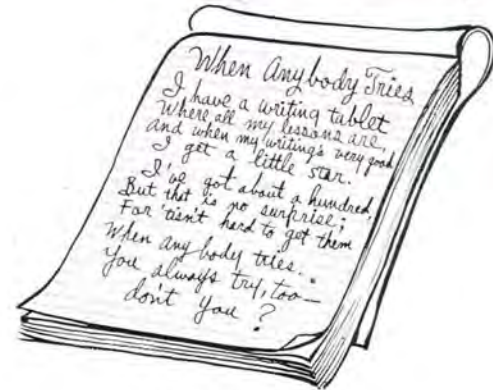 When Anybody Tries
I have a writing tablet
Where all my lessons are,
And when my writing's very good
I get a little star.
I've got about a hundred,
But that is no surprise;
For tisn't hard to get them
When any body tries.
You always try, too—
don't you?